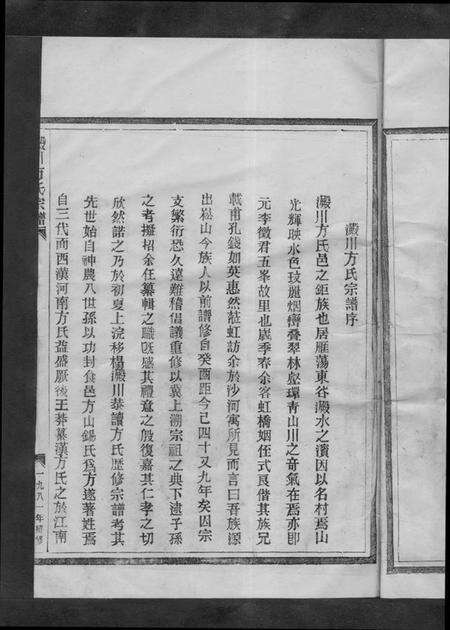 澱川方氏宗譜序
澱川方氏邑之鉅族也居雁蕩東谷澱水之濱因以名村焉山
光輝映水色玻麗烟巒疊翠林壑環青山川之奇氣在焉亦即
元李徵君五峯故里也歲季春余客虹橋姻侄式良偕其族兄
載甫孔錢如英惠然蒞虹訪余於沙河寓所見而言曰吾族源
出崧山今族人以前譜修自癸酉距今已四十又九年矣囚宗
支繁衍恐久遠難稽倡議重修以冀上溯宗祖之典下逮子孫
之考擬招余任纂輯之職既感其禮意之殷復嘉其仁孝之切
欣然諾之乃於初夏上浣移榻澱川恭讀方氏歷修宗譜考其
先世始自神農八世孫以功封食邑方山錫氏爲方遂著姓焉
自三代而西漢河南方氏益盛厥後王莽篡漢方氏之於江南
川方氏宗譜
一九八一年修